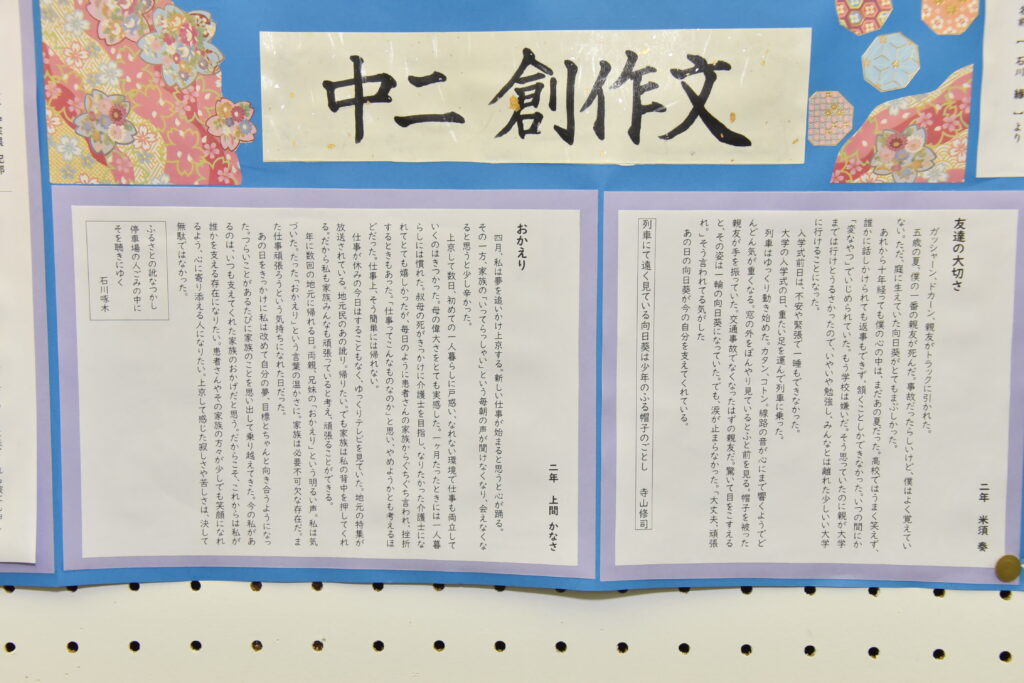 中二 創作文
友達の大切さ
二年 米須 奏
ガッシャーン、ドカーン、親友がトラックに引かれた。
五歳の夏、僕の一番の親友が死んだ。事故だったらしいけど、僕はよく覚えてい
ない。ただ、庭に生えていた向日葵がとてもまぶしかった。
あれから十年経っても僕の心の中は、まだあの夏だった。高校ではうまく笑えず、
誰かに話しかけられても返事もできず、頷くことしかできなかった。いつの間にか
「変なやつ」でいじめられていた。もう学校は嫌いだ。そう思っていたのに親が大学
までは行けとうるさかったので、いやいや勉強し、みんなとは離れた少しいい大学
に行けることになった。
入学式前日は、不安や緊張で一睡もできなかった。
大学の入学式の日、重たい足を運んで列車に乗った。
列車はゆっくり動き始めた。カタン、コトン。線路の音が心にまで響くようでど
んどん気が重くなる。窓の外をぼんやり見ているとふと前を見る。帽子を被った
親友が手を振っていた。交通事故でなくなったはずの親友だ。驚いて目をこすえる
と、その姿は一輪の向日葵になっていた。でも、涙が止まらなかった。「大丈夫、頑張
れ。」そう言われてる気がした
あの日の向日葵が今の自分を支えてくれている。
列車にて遠く見ている向日葵は少年のふる帽子のごとし 寺山修司
おかえり
二年 上間 かなさ
四月、私は夢を追いかけ上京する。新しい仕事が始まると思うと心が踊る。
その一方、家族の「いってらっしゃい」という毎朝の声が聞けなくなり、会えなくな
ると思うと少し辛かった。
上京して数日、初めての一人暮らしに戸惑い、なれない環境で仕事も両立して
いくのはきつかった。母の偉大さをとても実感した。一ヶ月たったときには一人暮
らしには慣れた。叔母の死がきっかけに介護士を目指し、なりたかった介護士にな
れてとても嬉しかったが、毎日のように患者さんの家族からぐちぐち言われ、挫折
するときもあった。「仕事ってこんなものなのか」と思い、やめようかとも考えるほ
どだった。仕事上、そう簡単には帰れない。
仕事が休みの今日はすることもなく、ゆっくりテレビを見ていた。地元の特集が
放送されている。地元民のあの訛り。帰りたい。でも家族は私の背中を押してくれ
る。だから私も家族みんなも頑張っていると考え、頑張ることができる。
年に数回の地元に帰れる日。両親、兄妹の「おかえり」という明るい声。私は気
づいた。たった「おかえり」という言葉の温かさに。家族は必要不可欠な存在だ。ま
た仕事頑張ろうという気持ちになれた日だった。
あの日をきっかけに私は改めて自分の夢、目標とちゃんと向き合うようになっ
た。つらいことがあるたびに家族のことを思い出して乗り越えてきた。今の私があ
るのは、いつも支えてくれた家族のおかげだと思う。だからこそ、これからは私が
誰かを支える存在になりたい。患者さんやその家族の方々が少しでも笑顔になれ
るよう、心に寄り添える人になりたい。上京して感じた寂しさや苦しさは、決して
無駄ではなかった。
ふるさとの訛なつかし
停車場の人ごみの中に
そを聴きにゆく
石川啄木